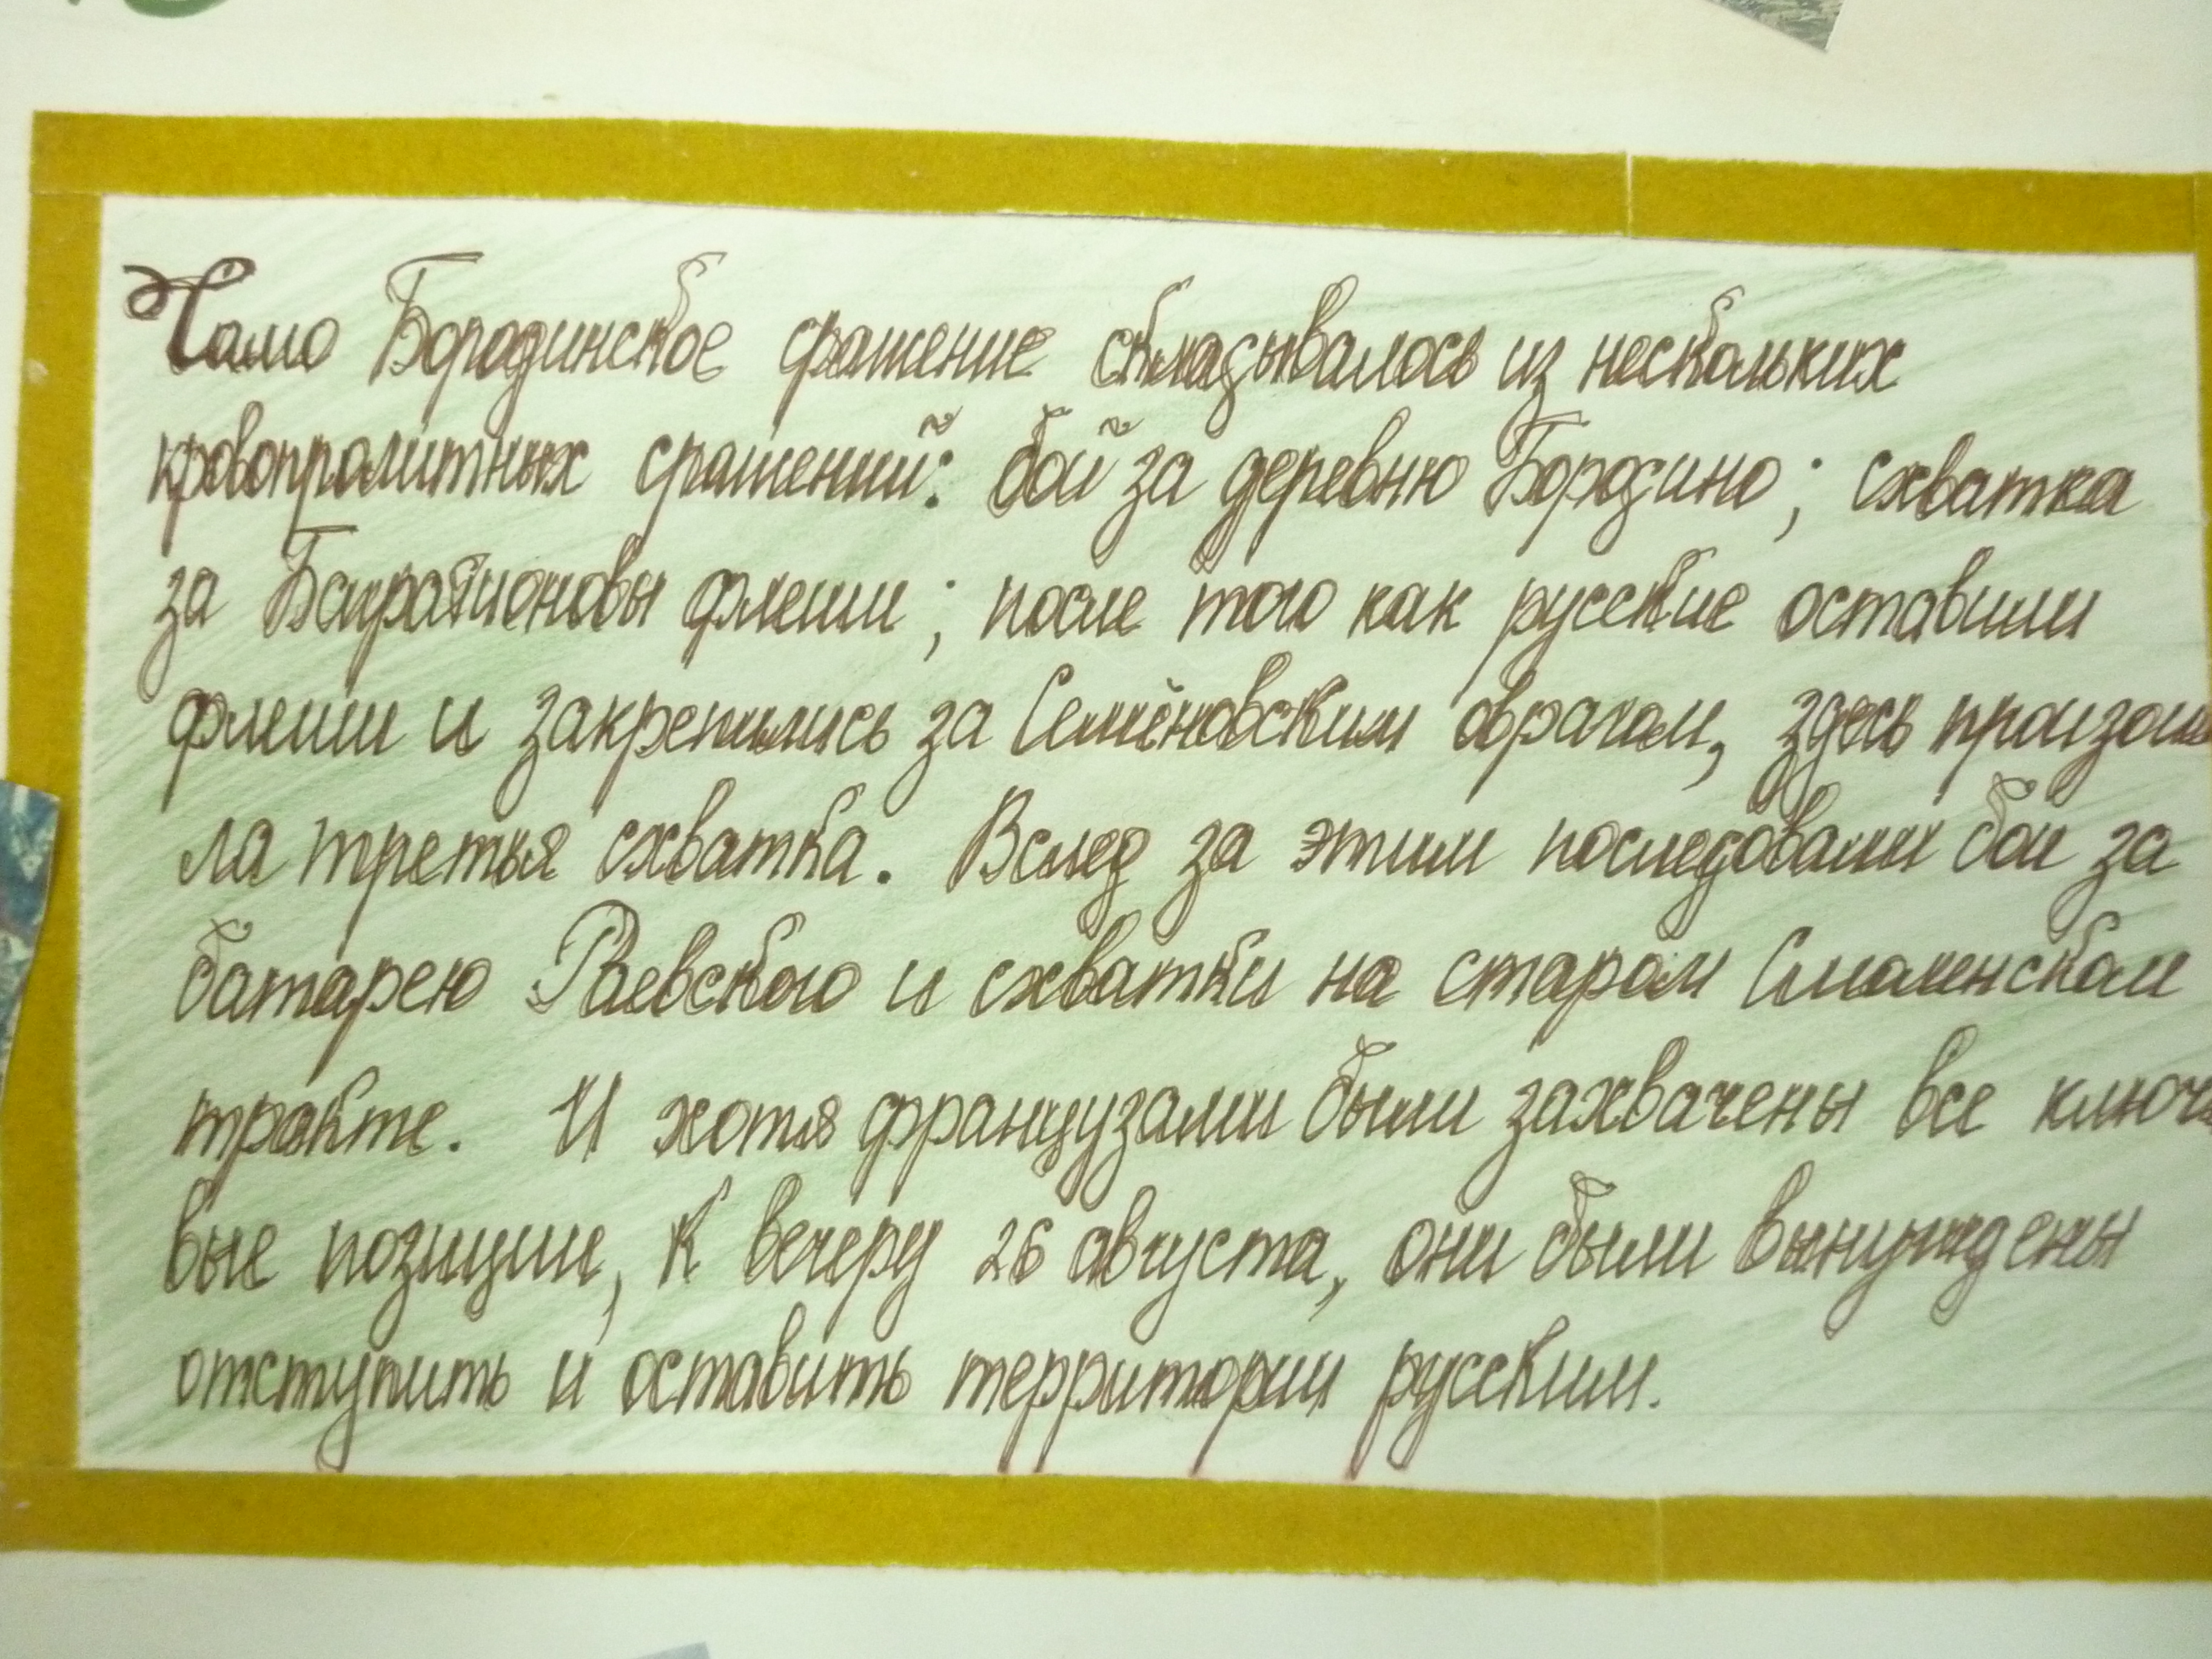 Само Бородинское сражение складывалось из нескольких
кровопролитных сражений: бой за деревню Бородино; схватка
за Багратионовы флеши; после того как русские оставили
флеши и закрепились за Семёновским оврагом, здесь произош
ла третья схватка. Вслед за этим последовали бои за
батарею Раевского и схватки на старом Смоленском
тракте. И хотя французами были захвачены все ключ
вые позиции, к вечеру 26 августа, они были вынуждены
отступить и оставить территории русским.